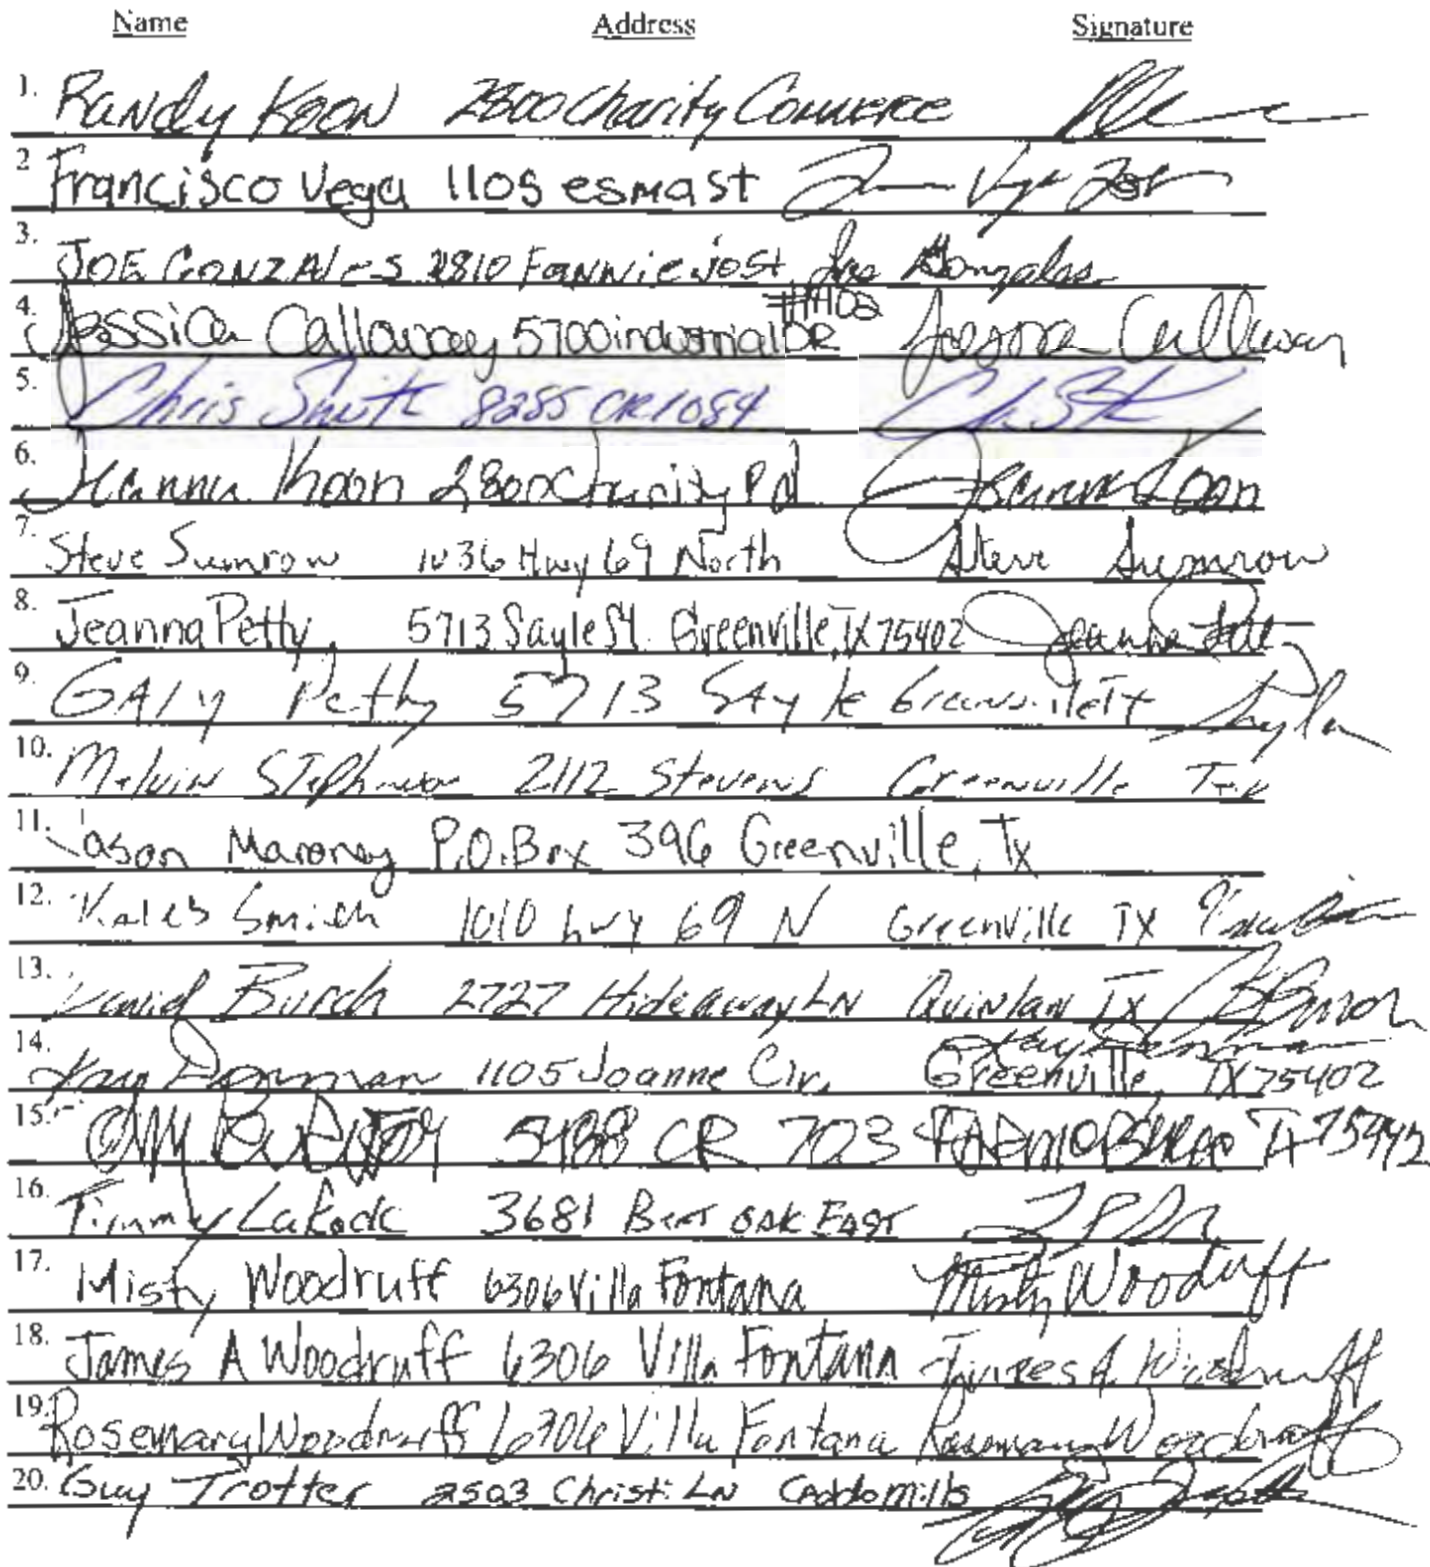 Name Address Signature
1. Randy Koon 2800 Charity Commerce
2 Francisco Vega 1105 esma st
3. JOE GONZAles 2810 Fannie jost Joe Gonzales
4. Jessica Callaway 5700 industrial DR #1402 Jessica Callaway
5. Chris Smith 8285 CR 1084
6. Jeanna Koon 2800 Charity Rd Jeanna Koon
7. Steve Sumrow 1036 Hwy 69 North Steve Sumrow
8. Jeanna Petty 5713 Sayle St. Greenville, TX 75402 Jeanna Pett
9. GAry Petty 5713 SAyle Greenville TX
10. Melvin Stephenson 2112 Stevens Greenville Tex
11. Jason Maroney P.O. Box 396 Greenville, Tx
12. Kaleb Smith 1010 hwy 69 N Greenville TX
13. David Burch 2727 Hideaway LN Quinlan TX
14. Kay Penman 1105 Joanne Cir. Greenville, TX 75402
15. 5488 CR 703 TX 75442
16. Timmy LaRock 3681 Bent oak East
17. Misty Woodruff 6306 Villa Fontana Misty Woodruff
18. James A Woodruff 6306 Villa Fontana James A Woodruff
19. Rosemary Woodruff 6306 Villa Fontana Rosemary Woodruff
20. Guy Trotter 2503 Christi LN Caddo mills